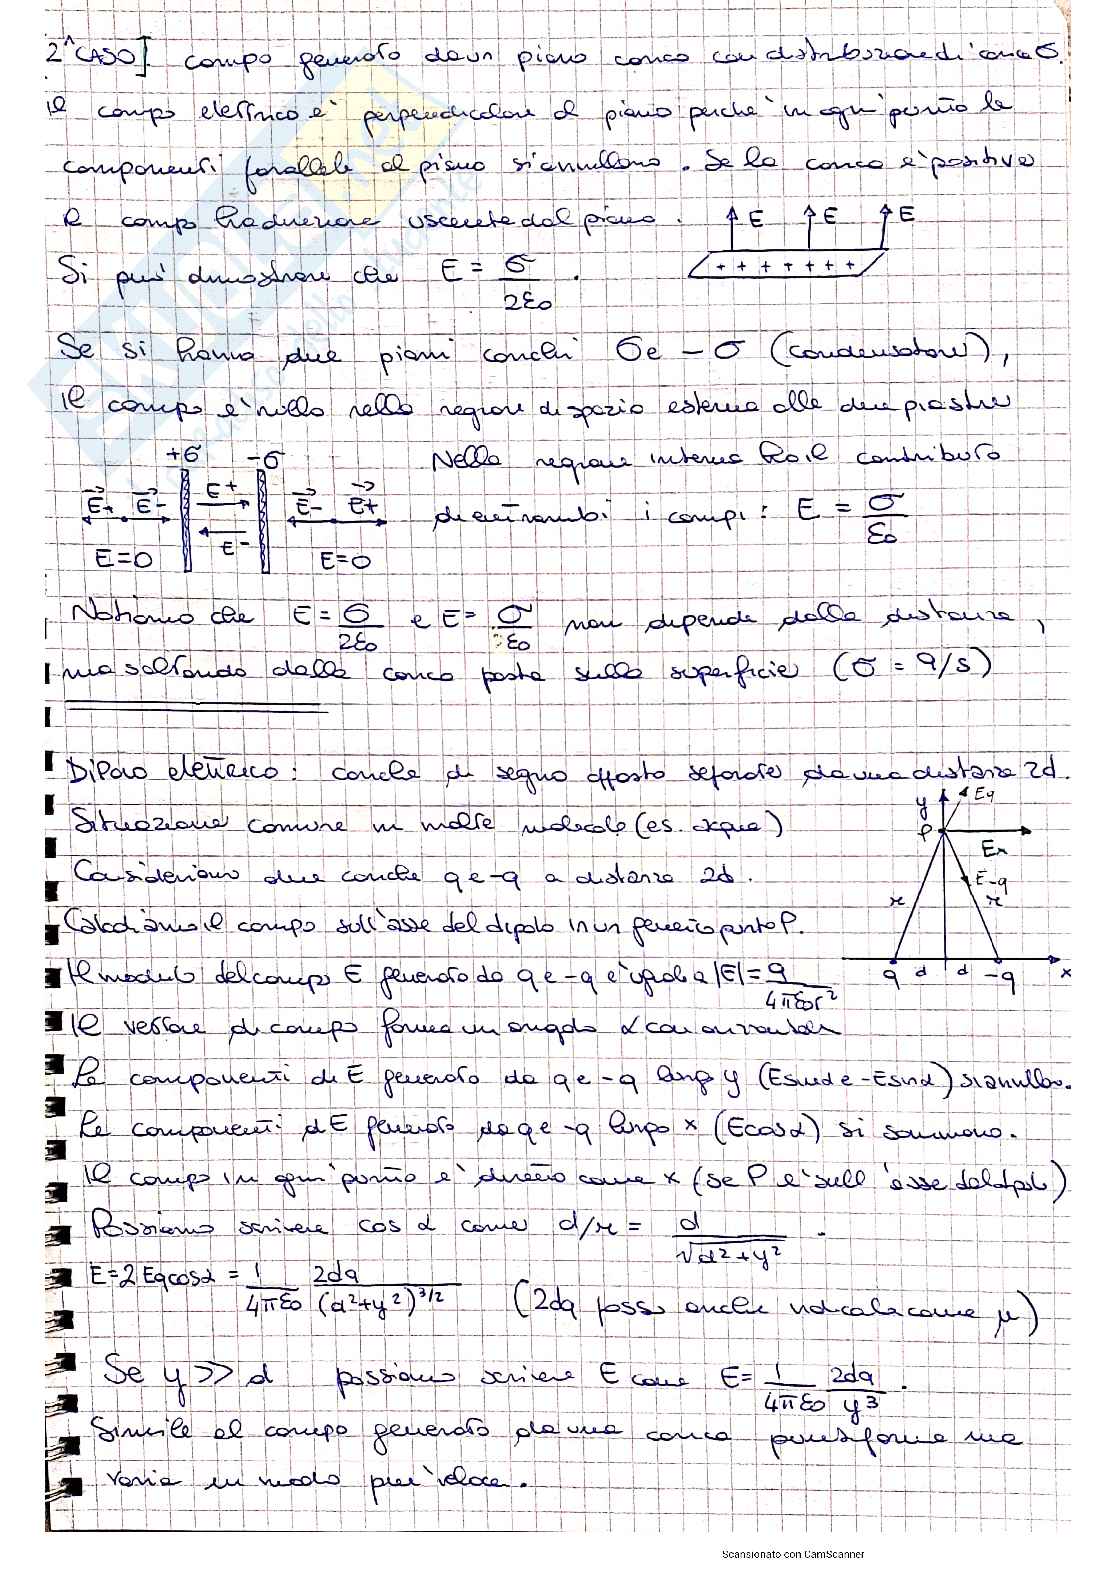 2^ CASO] campo generato da un piano carico con distribuzione di carica σ.
Il campo elettrico è perpendicolare al piano perché in ogni punto le
componenti parallele al piano si annullano. Se la carica è positiva
il campo ha direzione uscente dal piano.
E E E
+ + + + + + +
Si può dimostrare che E = σ/2ε0.
Se si hanno due piani carichi σ e -σ (condensatore),
il campo è nullo nella regione di spazio esterna alle due piastre
+σ -σ
Nella regione interna ho il contributo
E+ E- E+ E- E- E+
di entrambi i campi: E = σ/ε0
E=0 E=0
Notiamo che E = σ/2ε0 e E = σ/ε0 non dipende dalla distanza,
ma soltanto dalla carica posta sulla superficie (σ = q/s)
Dipolo elettrico: cariche di segno opposto separate da una distanza 2d.
Situazione comune in molte molecole (es. acqua)
Consideriamo due cariche q e -q a distanza 2d.
Calcoliamo il campo sull'asse del dipolo in un generico punto P.
y Eq
P Ex
E-q
r r
q d d -q x
Il modulo del campo E generato da q e -q è uguale a |E| = q/4πε0r²
Il vettore di campo forma un angolo α con
Le componenti di E generato da q e -q lungo y (Esinα e -Esinα) si annullano.
Le componenti di E generato da q e -q lungo x (Ecosα) si sommano.
Il campo in ogni punto è diretto come x (se P è sull'asse del dipolo)
Possiamo scrivere cos α come d/r = d/√d²+y².
E = 2Eqcosα = 1/4πε0 2dq/(d²+y²)^3/2 (2dq posso anche indicarla come μ)
Se y >> d possiamo scrivere E come E = 1/4πε0 2dq/y³.
Simile al campo generato da una carica puntiforme ma
varia in modo più veloce.
Scansionato con CamScanner